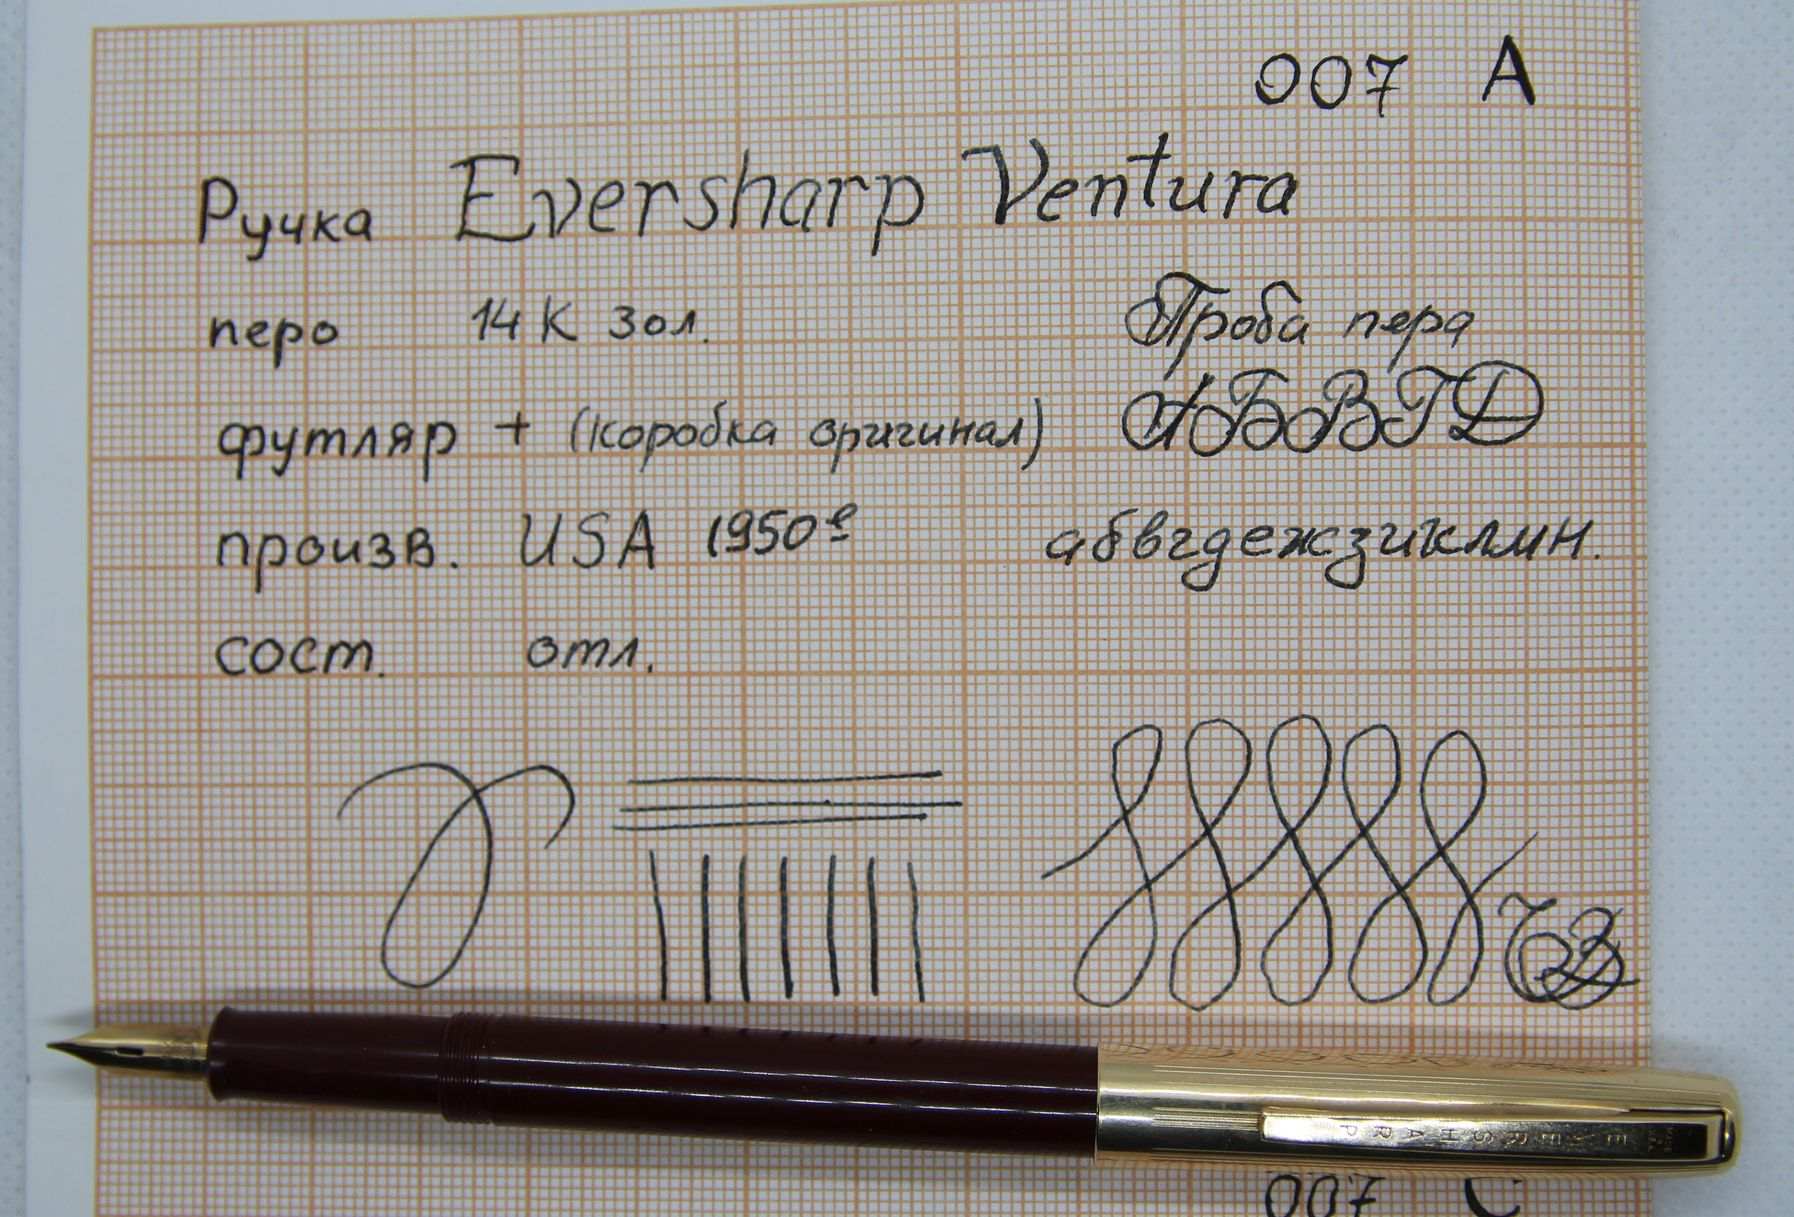 007 A
Ручка Eversharp Ventura
перо 14К зол.
Проба пера
футляр + (коробка оригинал)
АБВГД
произв. USA 1950е
абвгдежзиклмн.
сост. отл.
EVERSHARP
007 C